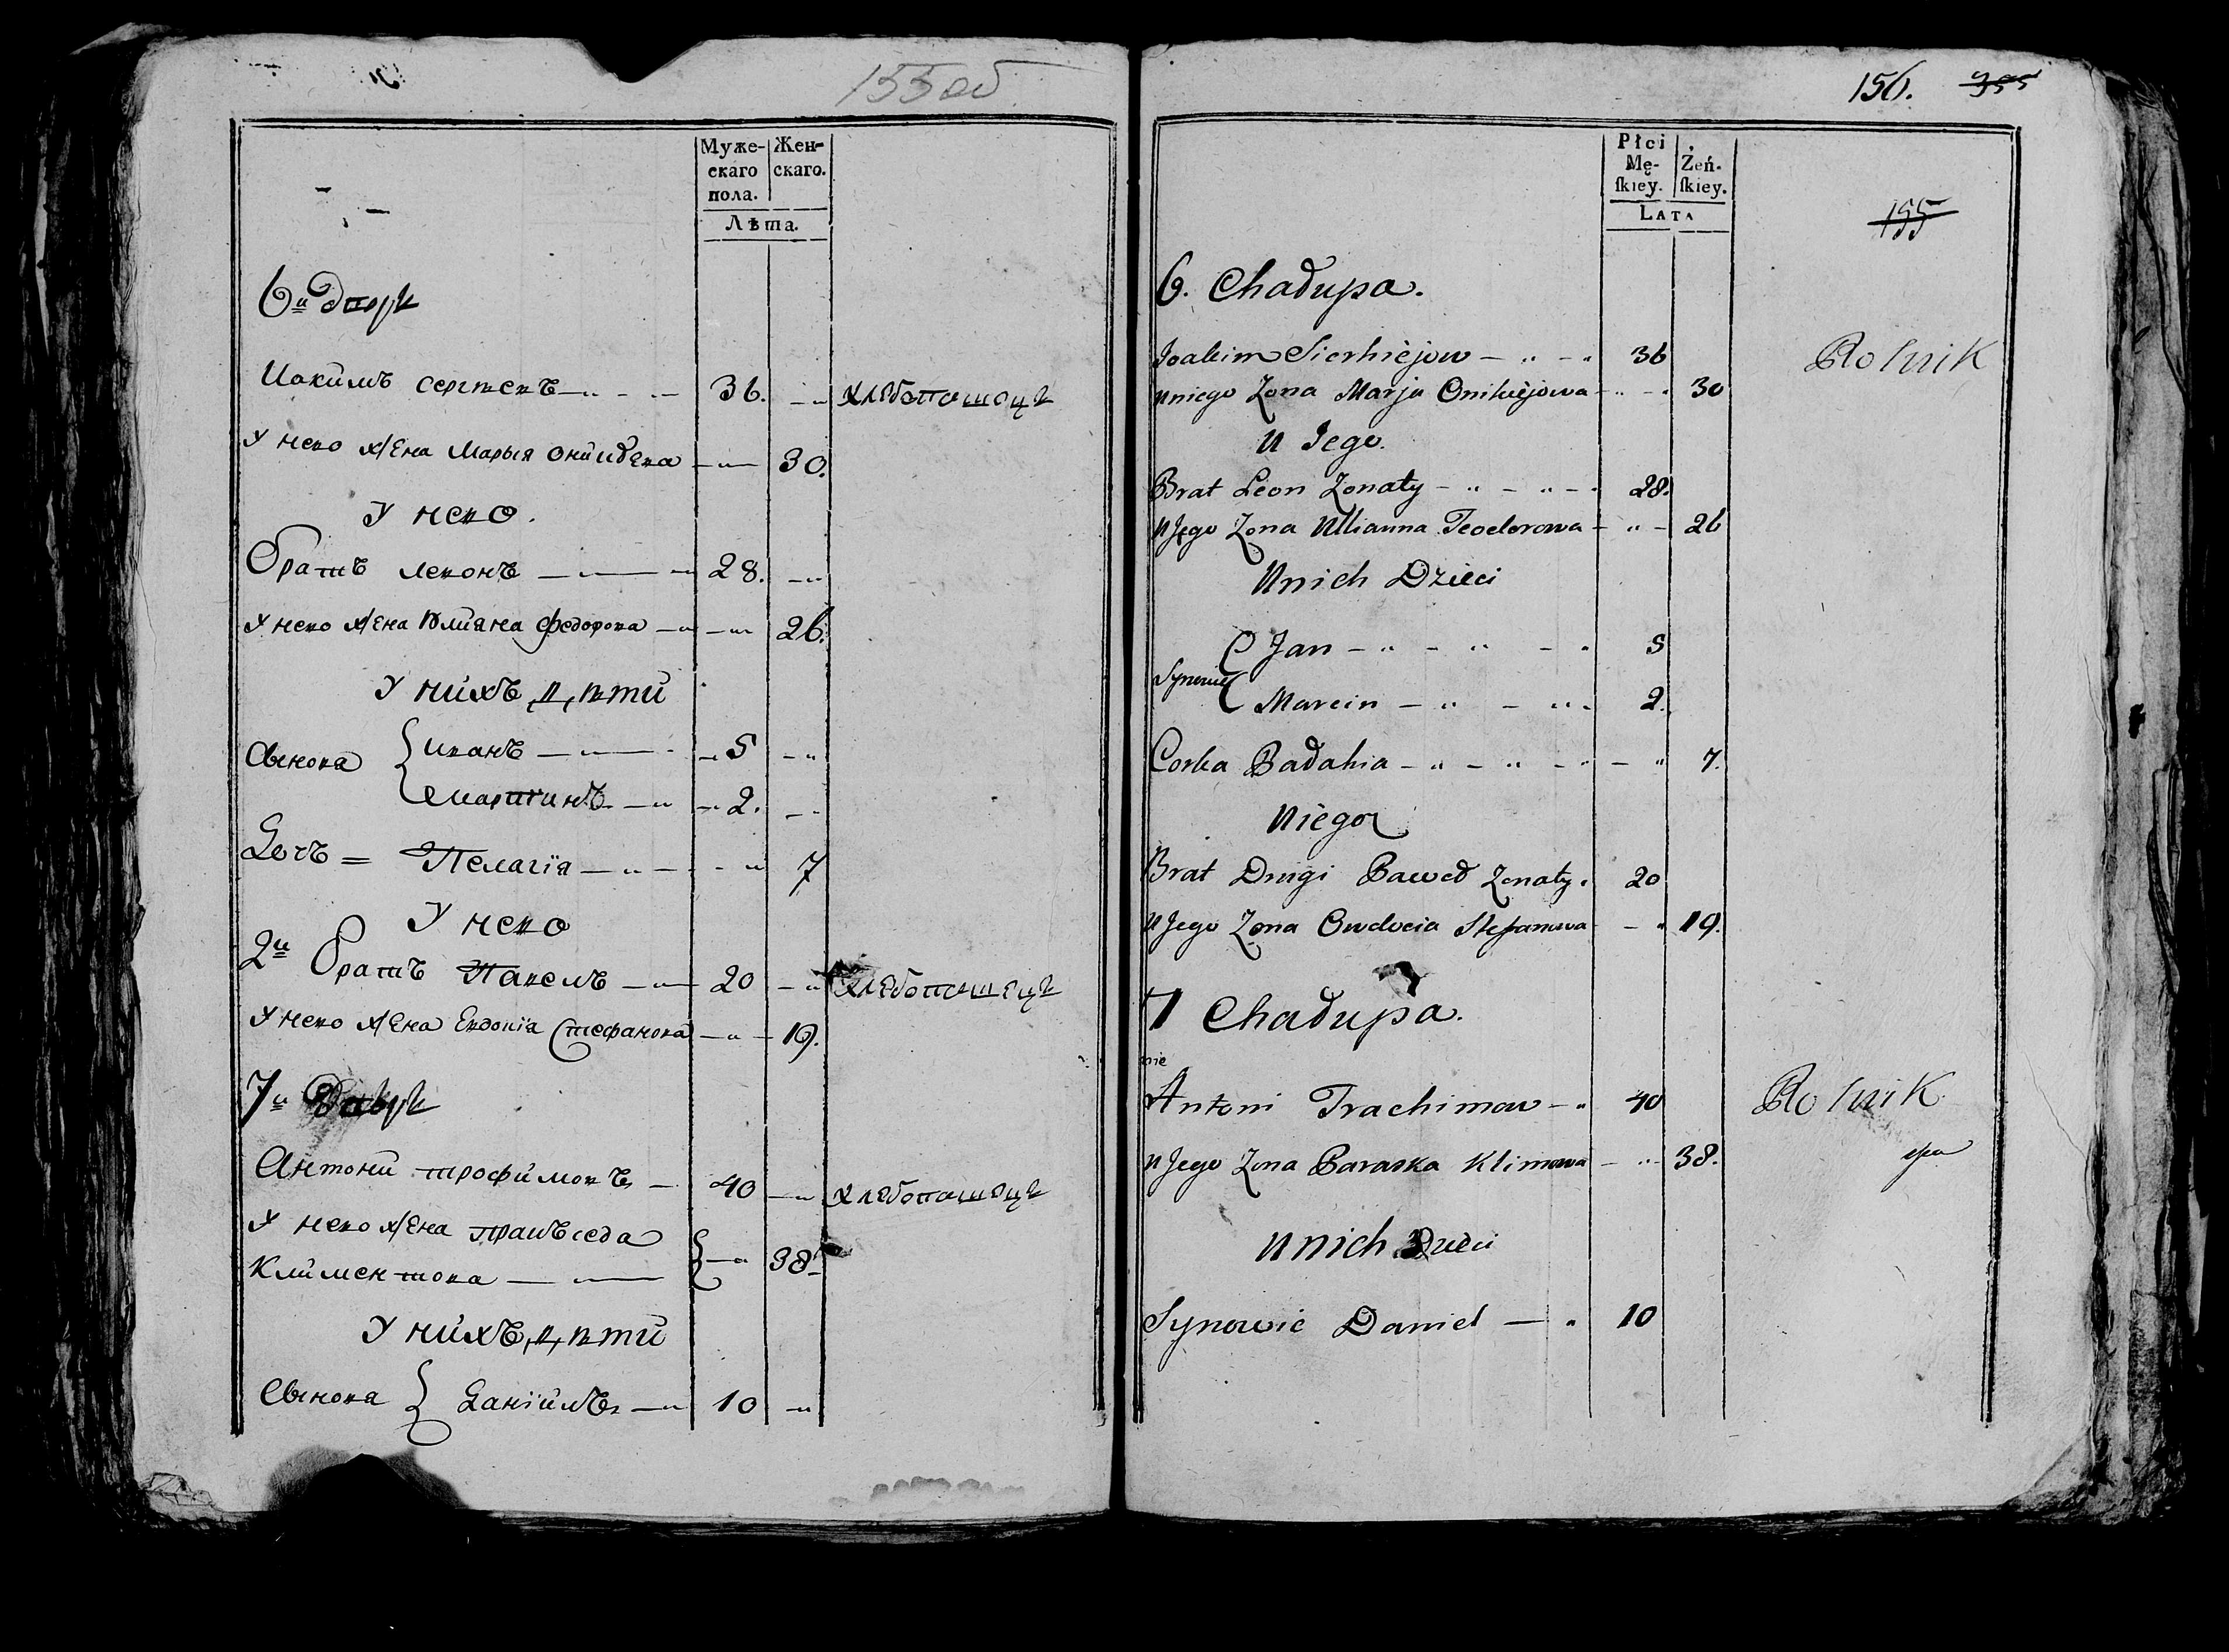 155 об
Муже-
скаго
пола.
Жен-
скаго.
Лѣта.
6й дворъ
Иокимъ сергеевъ — 36. хлебопашецъ
У него жена Марья 30.
У него.
братъ леонъ — 28.
У него жена Улияна федорова — 26.
У нихъ дѣти
Сынова { иванъ — 5
мартинъ — 2.
Дочь = Пелагія — 7
У него
2й братъ Павелъ — 20 хлебопашецъ
У него жена Евдокія Стефанова — 19.
7й дворъ
Антоній трофимовъ — 40 хлебопашецъ
У него жена
Климентова — 38.
У нихъ дѣти
Сынова { Даніилъ — 10
156. 355
Płci
Mę-
ſkiey.
Żeń-
ſkiey.
LATA
155
6. Chałupa.
Joakim Sierhiejow — 36 Rolnik
u niego Zona Marja Onikiejowa — 30
u Jego.
Brat Leon Zonaty — 28.
u Jego Zona Ullianna Teodorowa — 26
u nich Dzieci
Synowie { Jan — 5
Marcin — 2.
Corka Bałahia — 7.
u niego
Brat Drugi Paweł Zonaty. 20
u Jego Zona Owdocia Stefanowa — 19.
7 Chałupa.
Antoni Trachimow — 40 Rolnik
u Jego Zona Paraska Klimowa — 38.
u nich Dzieci
Synowie Daniel — 10